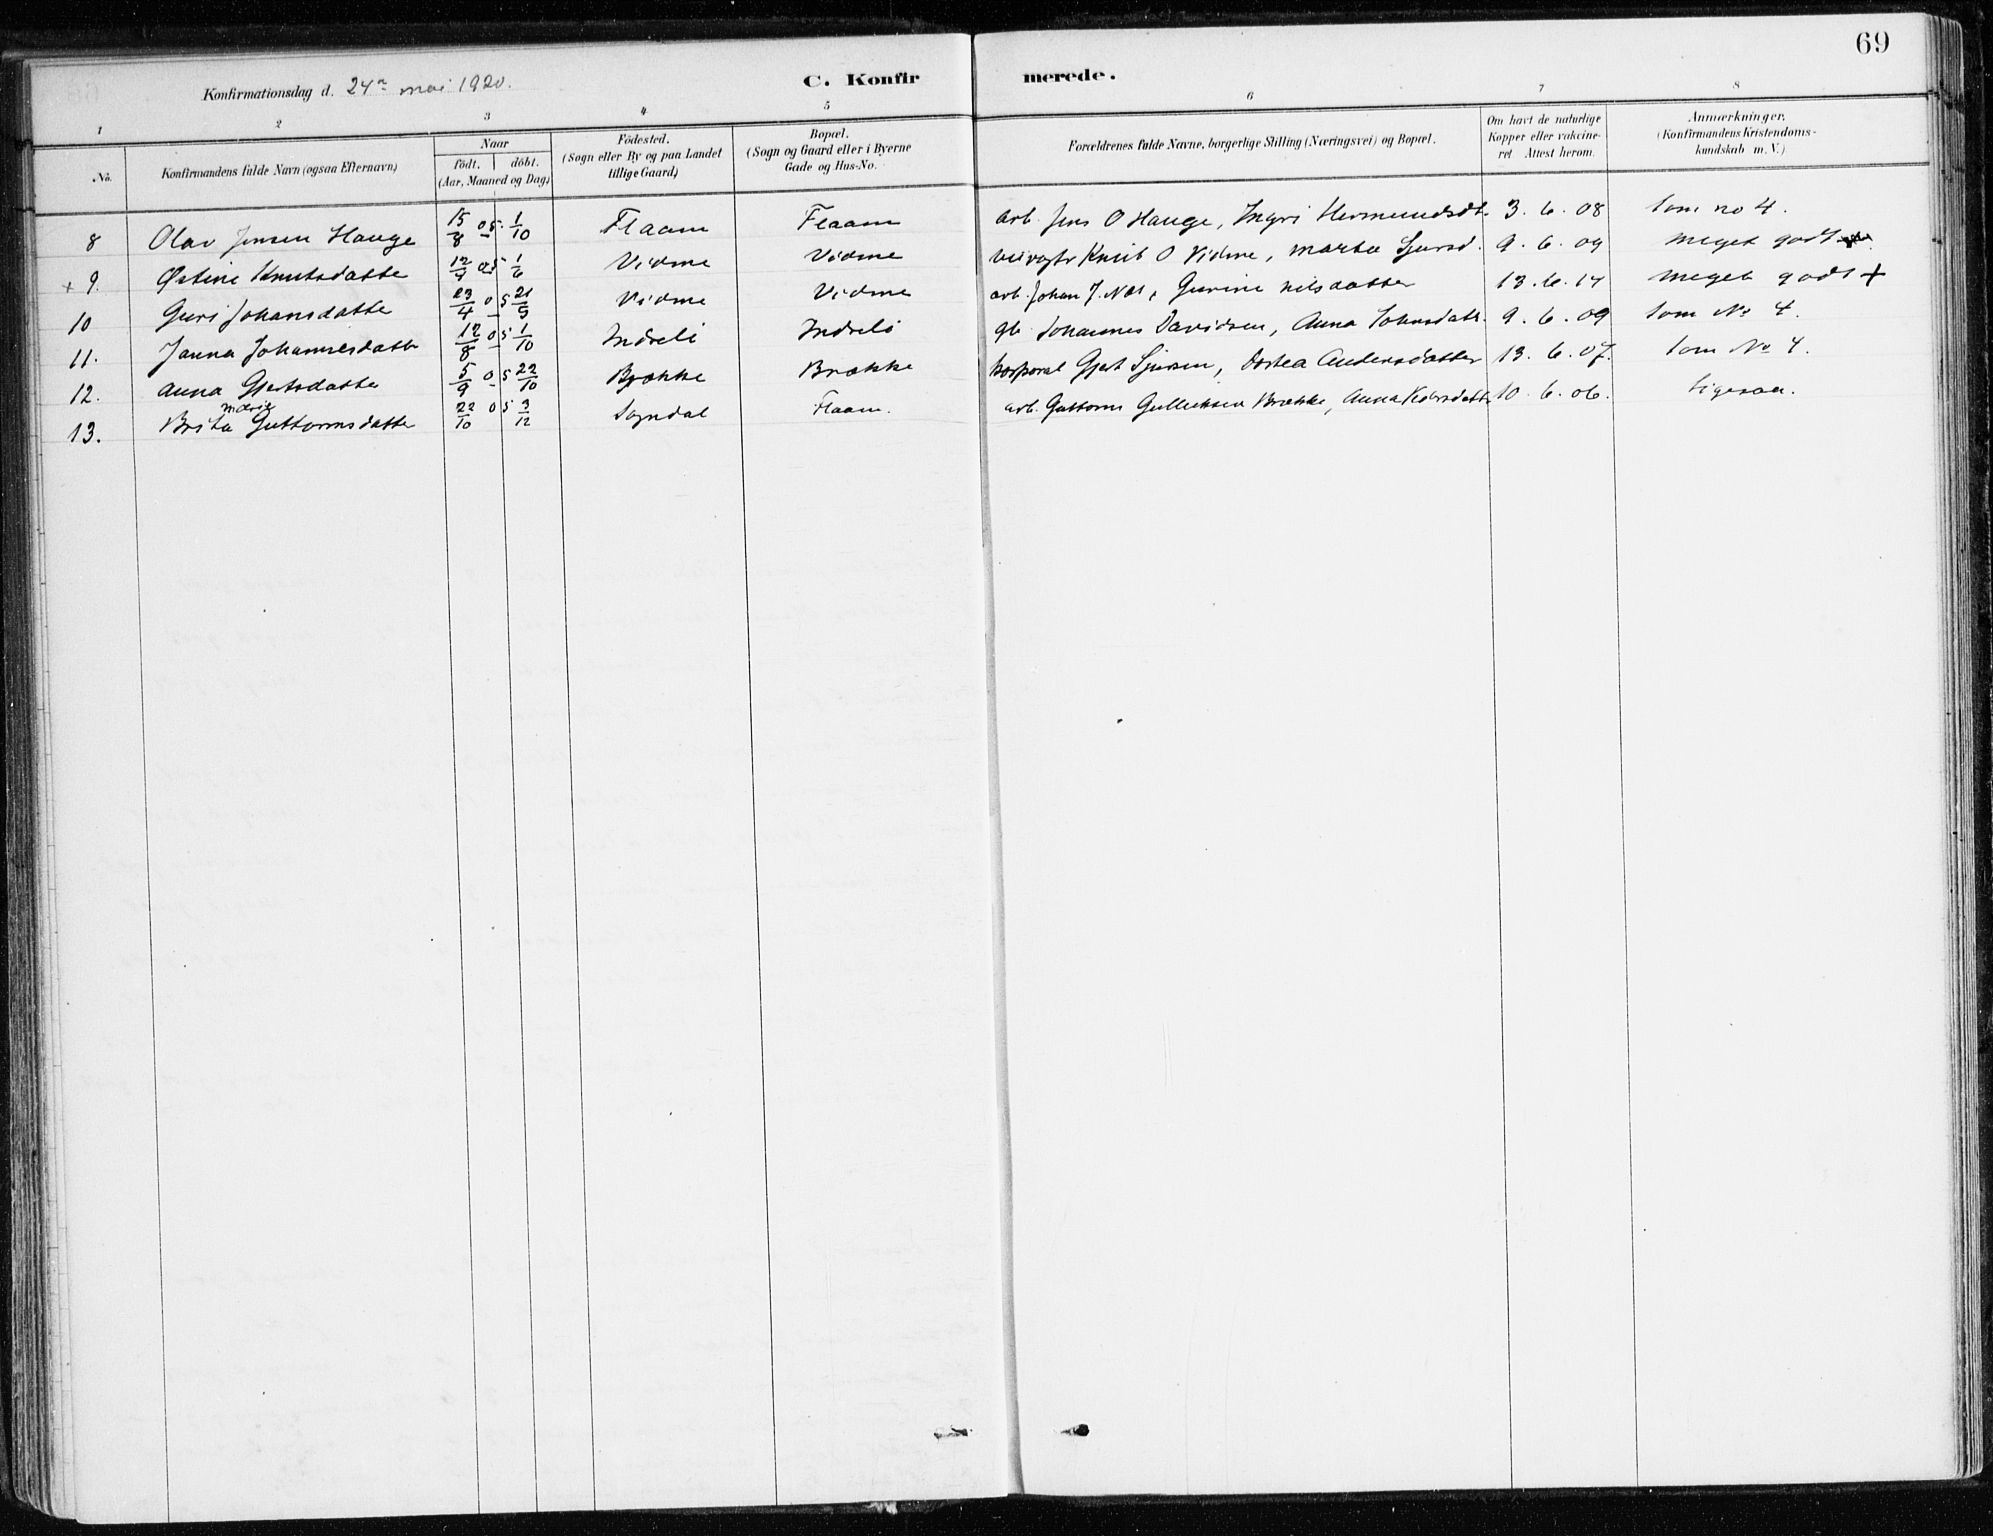 69
Konfirmationsdag d. 24de mai 1920.
C. Konfirmerede.
1 2 3 4 5 6 7 8
No.
Konfirmandens fulde Navn (ogsaa Efternavn)
Naar
født. | døbt.
(Aar, Maaned og Dag)
Fødested.
(Sogn eller By og paa Landet
tillige Gaard)
Bopæl.
(Sogn og Gaard eller i Byerne
Gade og Hus-No.
Forældrenes fulde Navne, borgerlige Stilling (Næringsvei) og Bopæl.
Om havt de naturlige
Kopper eller vakcine-
ret Attest herom.
Anmærkninger.
(Konfirmandens Kristendoms-
kundskab m. V.)
8 Olav Jensen Hauge 15/8 05 1/10 Flaam Flaam arb. Jens O Hauge, Ingri Hermundsdt. 3.6.08 som no 4.
+ 9. Østine Knutsdatte 05 1/6 Vidme Vidme Knut O Vidme, Marta Sjursd. 9.6.09 meget godt
10 Guri Johansdatte 23/4 05 21/5 Vidme Vidme arb. Johan J. Gurine Nilsdatter 13.6.17 meget godt +
11. Janna Johannesdatte 12/8 05 1/10 Indreli Indreli gb. Johannes Davidsen, Anna Johnsdatt. 9.6.09 som No 4.
12. Anna Gjertsdatte 5/9 05 22/10 Brække Brække korporal Gjert Sjursen, Dortea Andersdatter 13.6.07. som No 4.
13. Brita Marie Guttormsdatte 22/10 05 3/12 Sogndal Flaam. arb. Guttorm Gulleiksen Brække, Anna Pedersdatt. 10.6.06. Ligesaa.